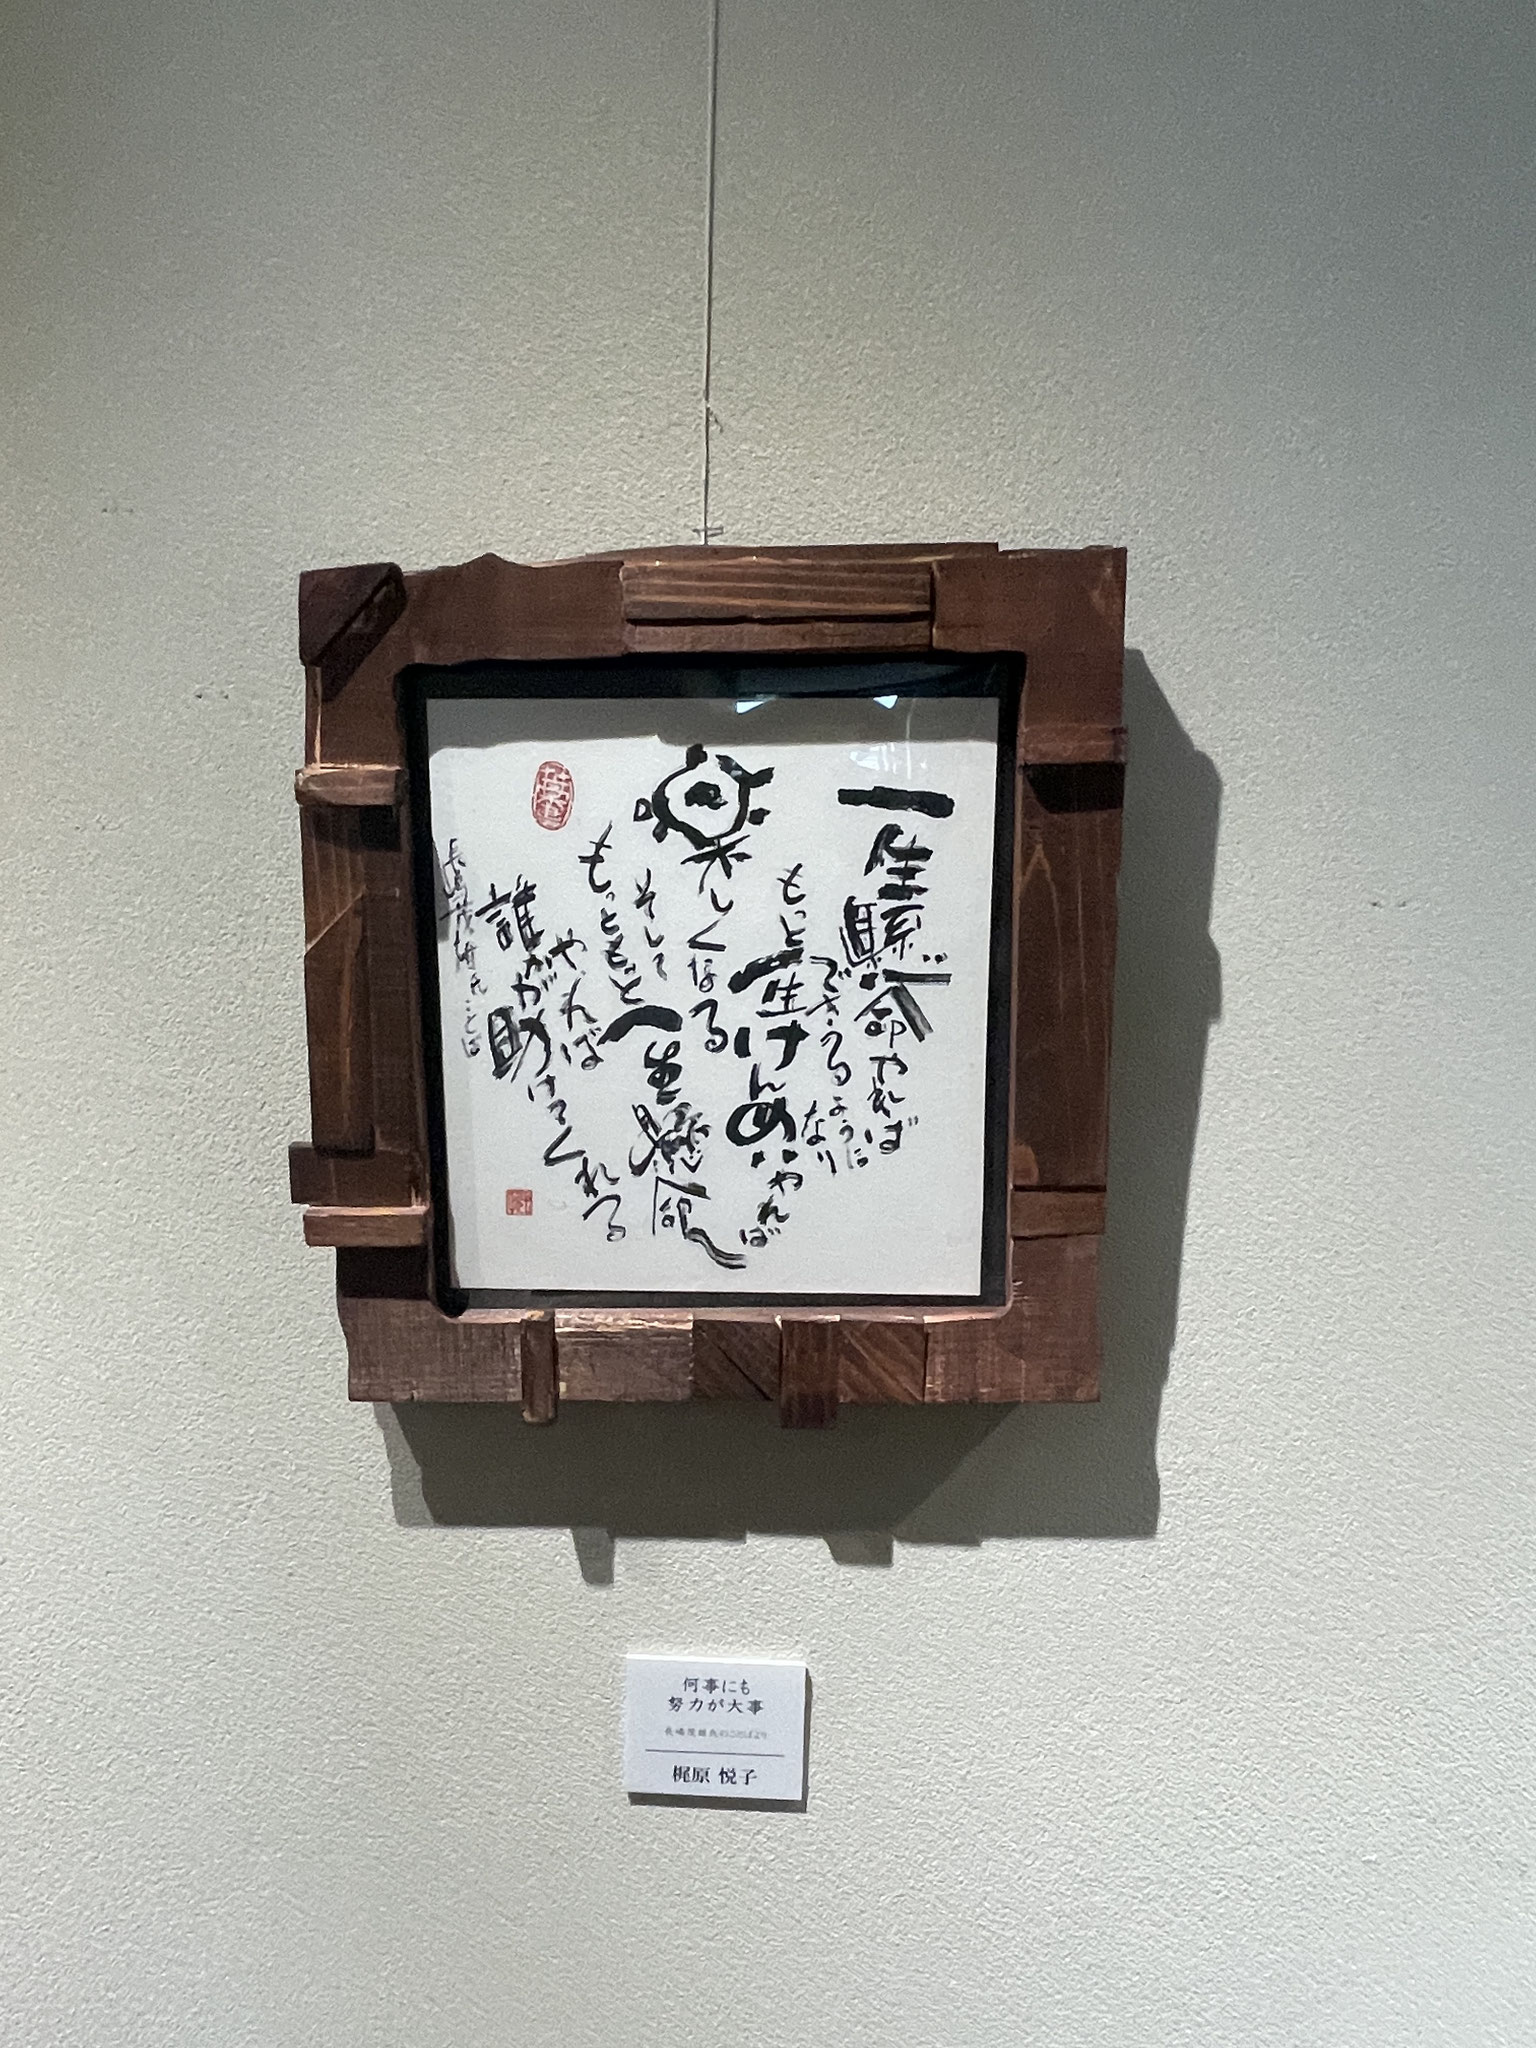 一生懸命やれば
できるようになり
もっと一生けんめいやれば
楽しくなる
そして
もっともっと一生懸命
やれば
誰かが助けてくれる
長嶋茂雄氏ことば
何事にも
努力が大事
長嶋茂雄氏のことばより
梶原 悦子